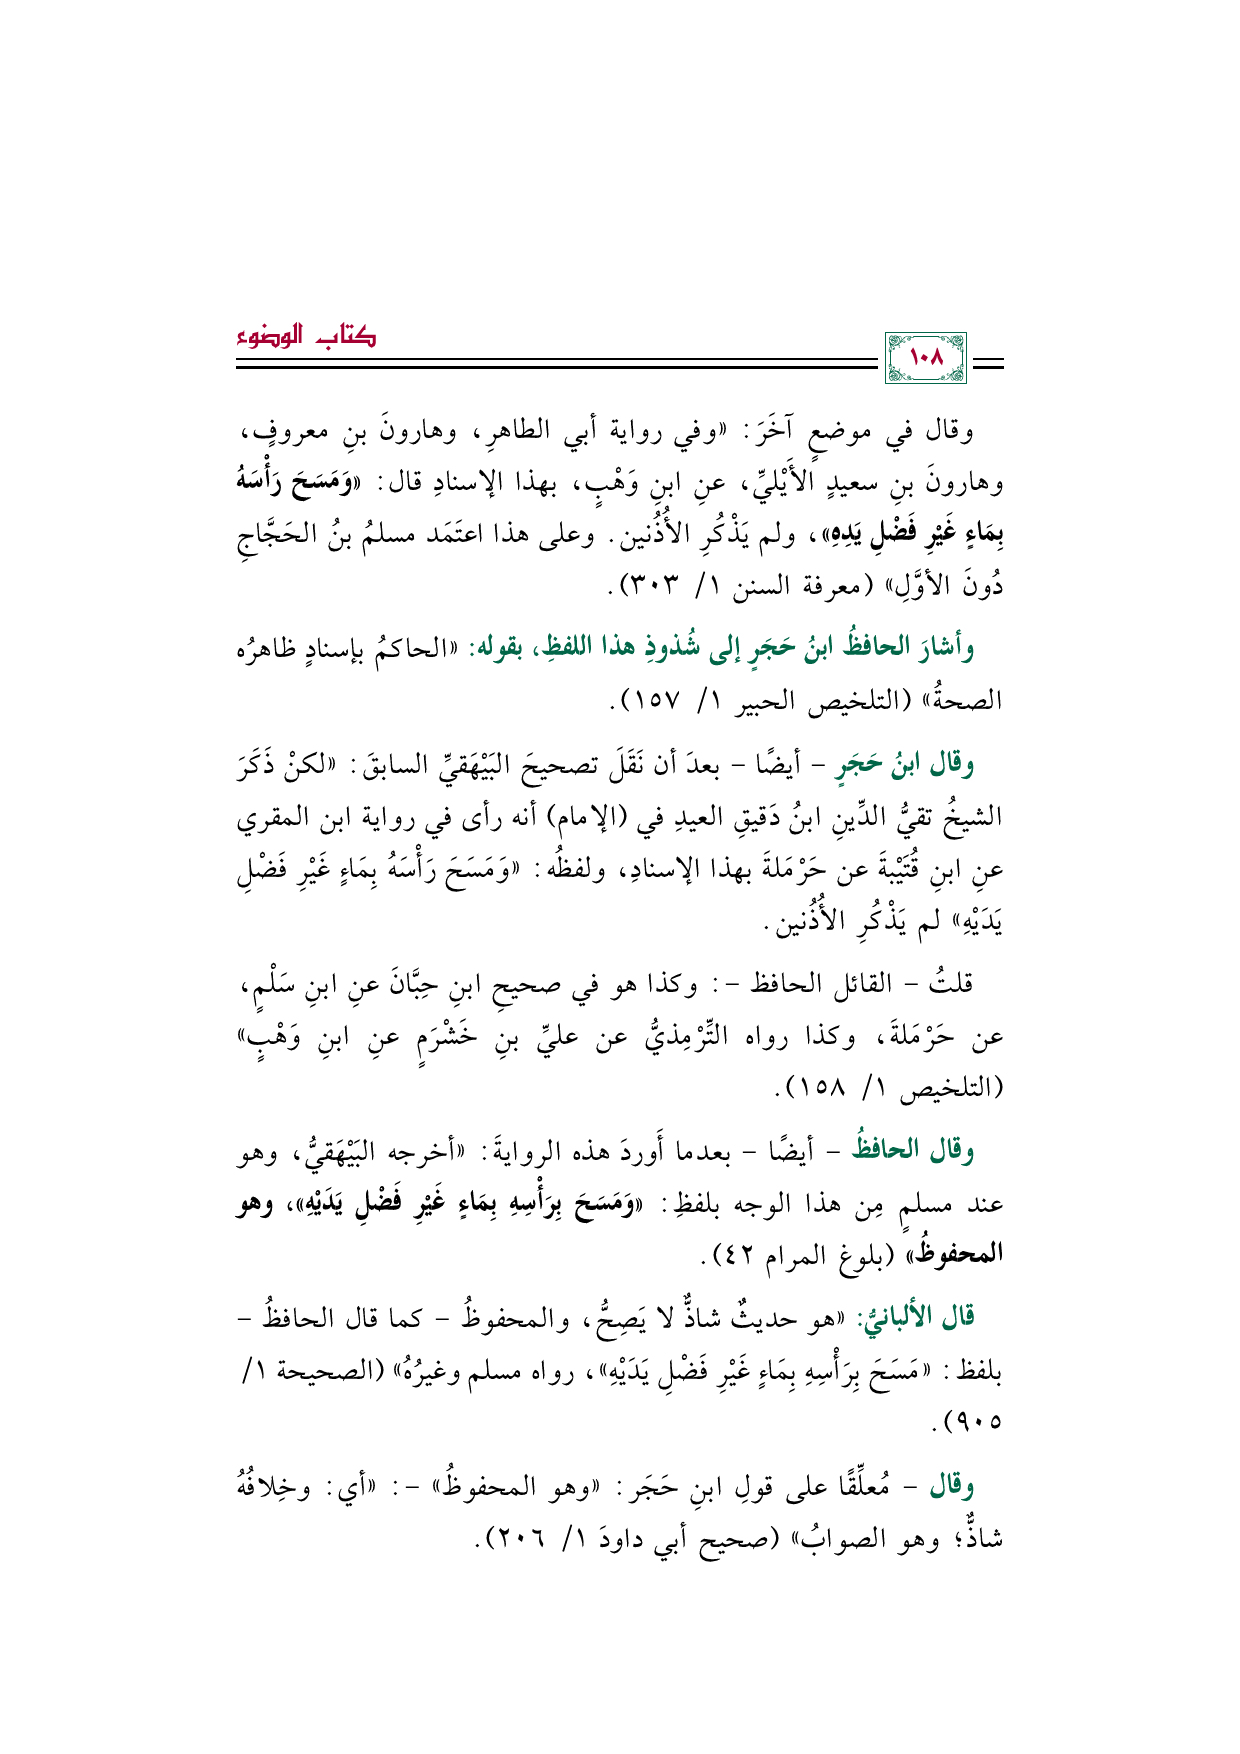 كتاب الوضوء
١٠٨
وقال في موضعٍ آخَرَ: «وفي رواية أبي الطاهرِ، وهارونَ بنِ معروفٍ،
وهارونَ بنِ سعيدٍ الأَيْليِّ، عنِ ابنِ وَهْبٍ، بهذا الإسنادِ قال: «وَمَسَحَ رَأْسَهُ
بِمَاءٍ غَيْرِ فَضْلِ يَدِهِ»، ولم يَذْكُرِ الأُذُنين. وعلى هذا اعتَمَد مسلمُ بنُ الحَجَّاجِ
دُونَ الأوَّلِ» (معرفة السنن ١/ ٣٠٣).
وأشارَ الحافظُ ابنُ حَجَرٍ إلى شُذوذِ هذا اللفظِ، بقوله: «الحاكمُ بإسنادٍ ظاهرُه
الصحةُ» (التلخيص الحبير ١/ ١٥٧).
وقال ابنُ حَجَرٍ – أيضًا – بعدَ أن نَقَلَ تصحيحَ البَيْهَقيِّ السابقَ: «لكنْ ذَكَرَ
الشيخُ تقيُّ الدِّينِ ابنُ دَقيقِ العيدِ في (الإمام) أنه رأى في رواية ابن المقري
عنِ ابنِ قُتَيْبةَ عن حَرْمَلةَ بهذا الإسنادِ، ولفظُه: «وَمَسَحَ رَأْسَهُ بِمَاءٍ غَيْرِ فَضْلِ
يَدَيْهِ» لم يَذْكُرِ الأُذُنين.
قلتُ – القائل الحافظ –: وكذا هو في صحيحِ ابنِ حِبَّانَ عنِ ابنِ سَلْمٍ،
عن حَرْمَلةَ، وكذا رواه التِّرْمِذيُّ عن عليِّ بنِ خَشْرَمٍ عنِ ابنِ وَهْبٍ»
(التلخيص ١/ ١٥٨).
وقال الحافظُ – أيضًا – بعدما أَوردَ هذه الروايةَ: «أخرجه البَيْهَقيُّ، وهو
عند مسلمٍ مِن هذا الوجه بلفظِ: «وَمَسَحَ بِرَأْسِهِ بِمَاءٍ غَيْرِ فَضْلِ يَدَيْهِ»، وهو
المحفوظُ» (بلوغ المرام ٤٢).
قال الألبانيُّ: «هو حديثٌ شاذٌّ لا يَصِحُّ، والمحفوظُ – كما قال الحافظُ –
بلفظ: «مَسَحَ بِرَأْسِهِ بِمَاءٍ غَيْرِ فَضْلِ يَدَيْهِ»، رواه مسلم وغيرُهُ» (الصحيحة ١/
٩٠٥).
وقال – مُعلِّقًا على قولِ ابنِ حَجَر: «وهو المحفوظُ» –: «أي: وخِلافُهُ
شاذٌّ؛ وهو الصوابُ» (صحيح أبي داودَ ١/ ٢٠٦).